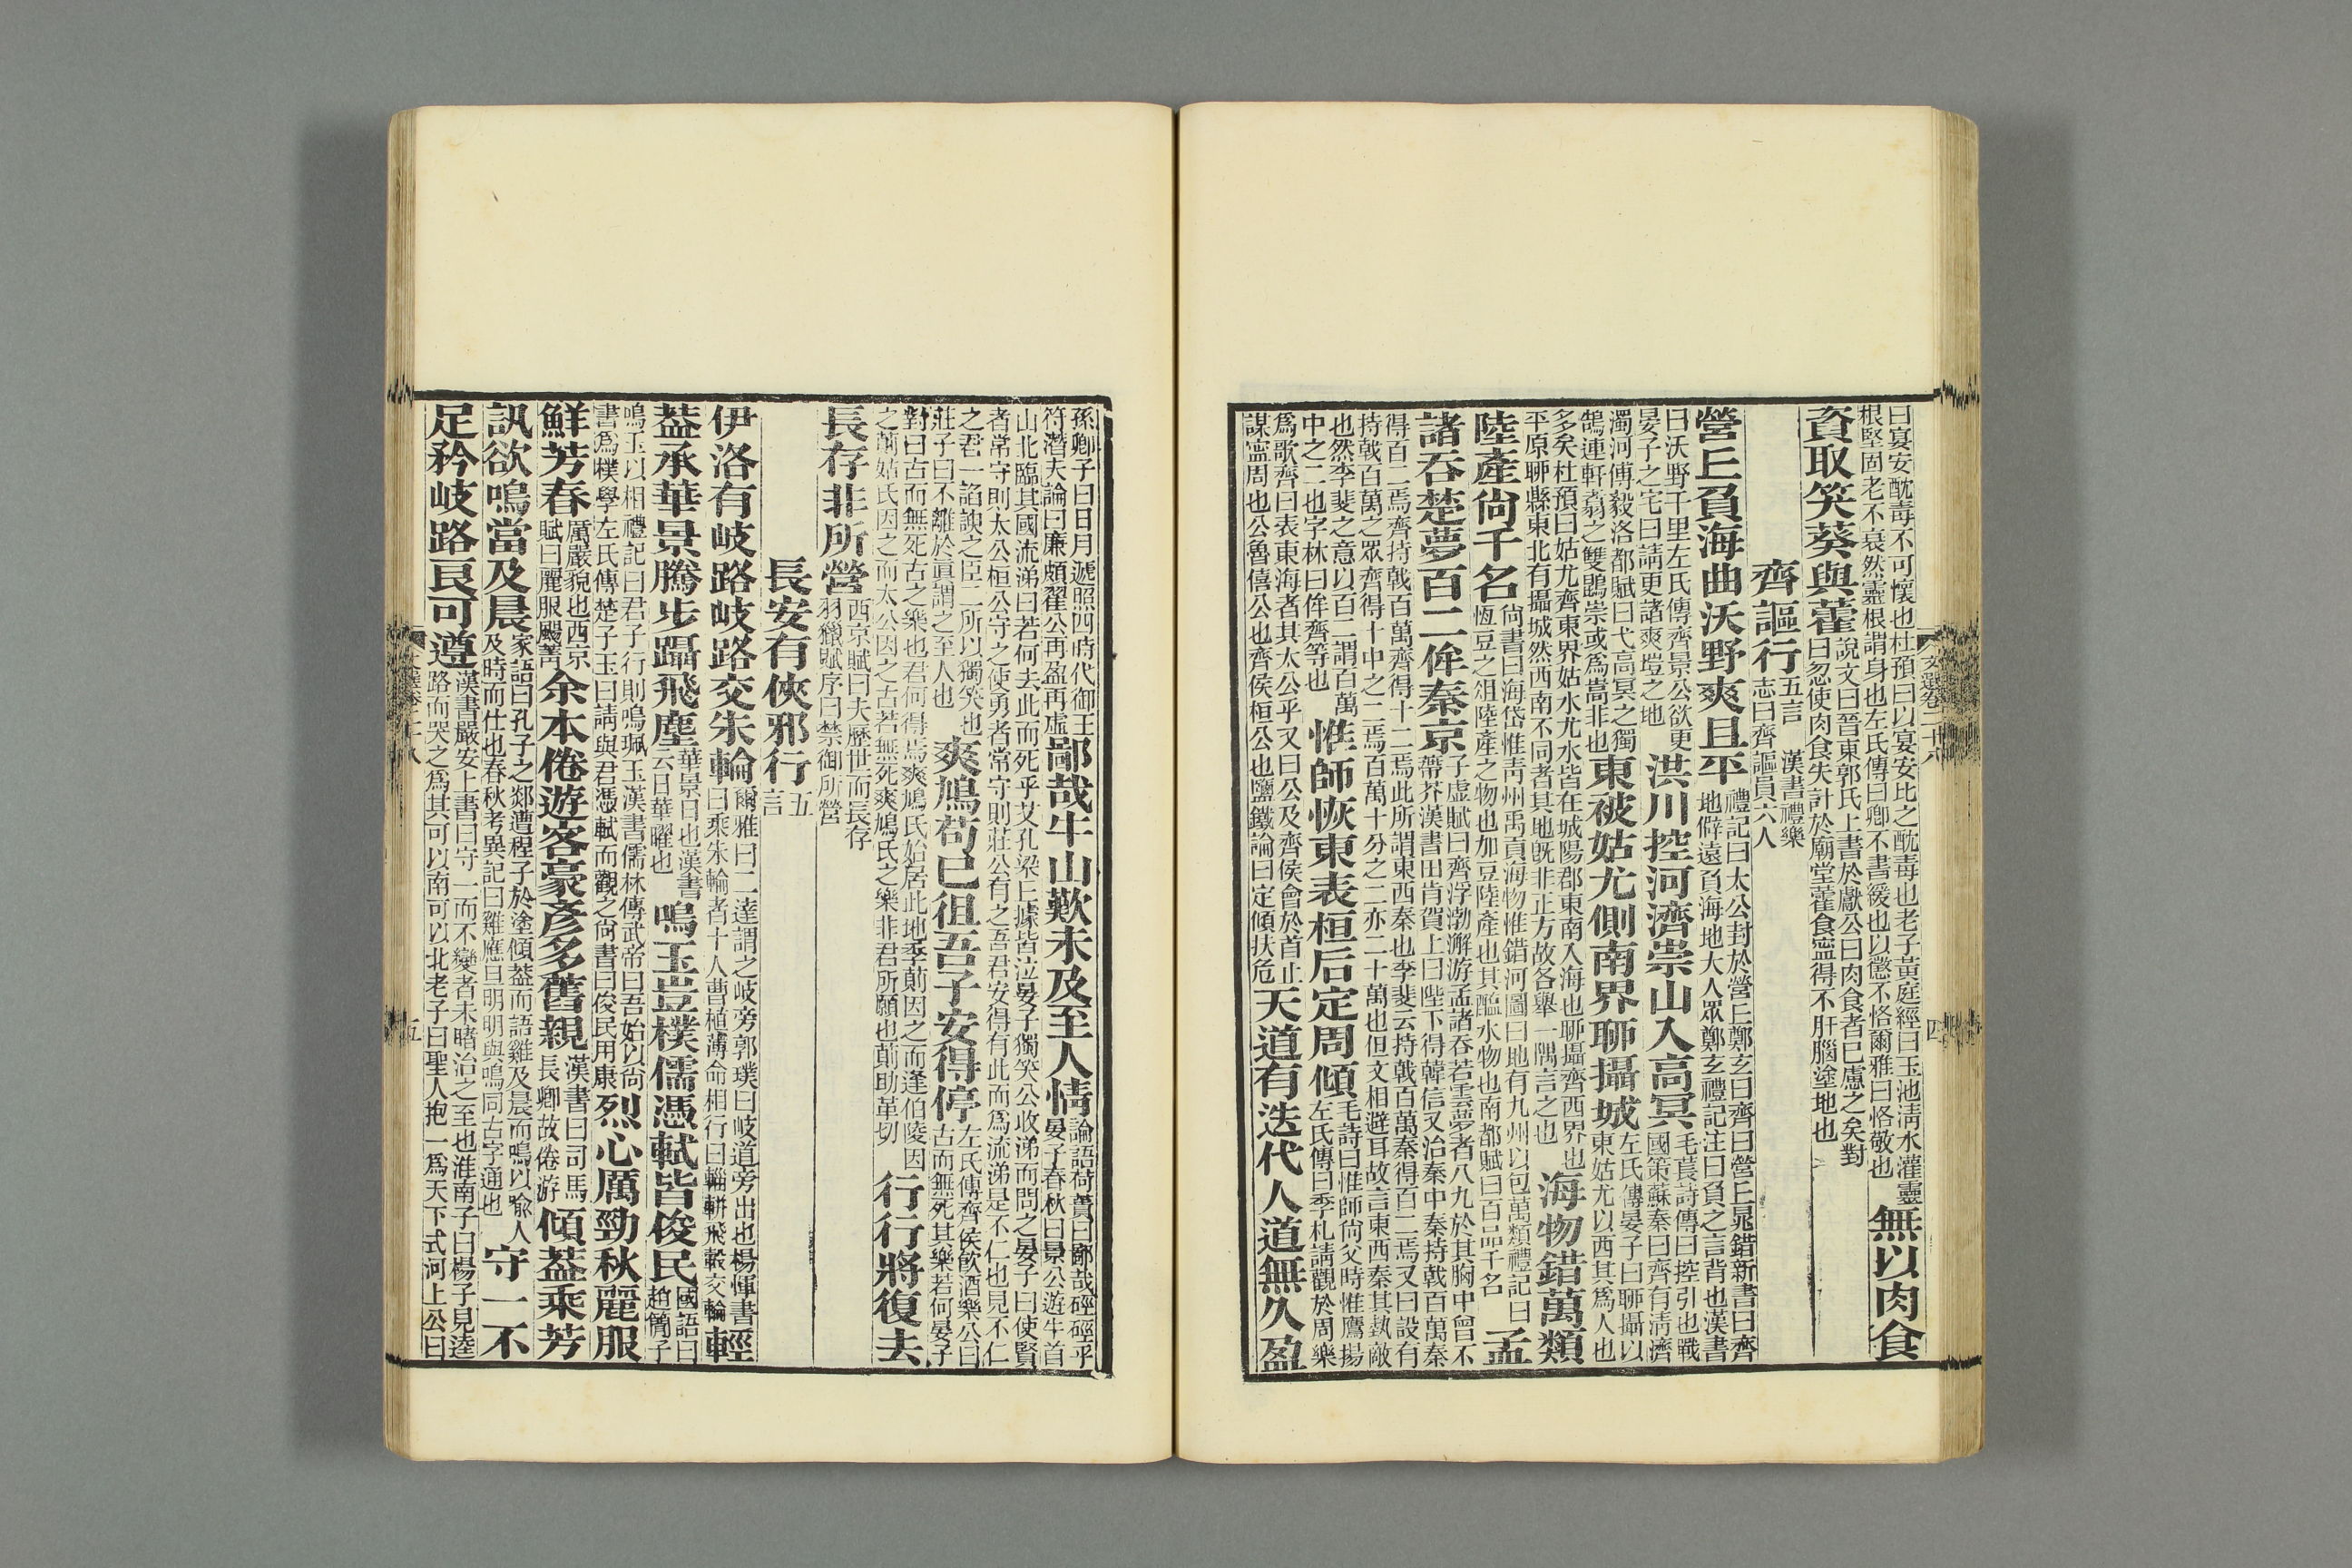 曰宴安酖毒不可懷也杜預曰以宴安比之酖毒也老子黃庭經曰玉池清水灌靈
根堅固老不衰然靈根謂身也左氏傳曰卿不書緩也以懲不恪爾雅曰恪敬也
無以肉食
資取笑葵與藿
說文曰晉東郭氏上書於獻公曰肉食者已慮之矣對
曰忽使肉食失計於廟堂藿食寧得不肝腦塗地也
齊謳行
五言　漢書禮樂
志曰齊謳員六人
營丘負海曲沃野爽且平
禮記曰太公封於營丘鄭玄曰齊曰營丘晁錯新書曰齊
地僻遠負海地大人眾鄭玄禮記注曰負之言背也漢書
曰沃野千里左氏傳齊景公欲更
晏子之宅曰請更諸爽塏之地
洪川控河濟崇山入高冥
毛萇詩傳曰控引也戰
國策蘇秦曰齊有清濟
濁河傅毅洛都賦曰弋高冥之獨
鵠連軒翥之雙鵾崇或為嵩非也
東被姑尤側南界聊攝城
左氏傳晏子曰聊攝以
東姑尤以西其為人也
多矣杜預曰姑尤齊東界姑水尤水皆在城陽郡東南入海也聊攝齊西界也
平原聊縣東北有攝城然西南不同者其地既非正方故各舉一隅言之也
海物錯萬類
陸產尚千名
尚書曰海岱惟青州禹貢海物惟錯河圖曰地有九州以包萬類禮記曰
恆豆之俎陸產之物也加豆陸產也其醢水物也南都賦曰百品千名
孟
諸吞楚夢百二侔秦京
子虛賦曰齊浮渤澥游孟諸吞若雲夢者八九於其胸中曾不
蔕芥漢書田肯賀上曰陛下得韓信又治秦中秦持戟百萬秦
得百二焉齊持戟百萬齊得十二焉此所謂東西秦也李斐云持戟百萬秦得百二焉又曰設有
持戟百萬之眾齊得十中之二焉百萬十分之二亦二十萬也但文相避耳故言東西秦其埶敵
也然李斐之意以百二謂百萬
中之二也字林曰侔齊等也
惟師恢東表桓后定周傾
毛詩曰惟師尚父時惟鷹揚
左氏傳曰季札請觀於周樂
為歌齊曰表東海者其太公乎又曰公及齊侯會於首止
謀寧周也公魯僖公也齊侯桓公也鹽鐵論曰定傾扶危
天道有迭代人道無久盈
文選卷二十八
四
孫卿子曰日月遞照四時代御王
符潛夫論曰廉頗翟公再盈再虛
鄙哉牛山歎未及至人情
論語荷蕢曰鄙哉硜硜乎
晏子春秋曰景公遊牛首
山北臨其國流涕曰若何去此而死乎艾孔梁丘據皆泣晏子獨笑公收涕而問之晏子曰使賢
者常守則太公桓公守之使勇者常守則莊公有之吾君安得有此而為流涕是不仁也見不仁
之君一諂諛之臣二所以獨笑也
莊子曰不離於真謂之至人也
爽鳩苟已徂吾子安得停
左氏傳齊侯飲酒樂公曰
古而無死其樂若何晏子
對曰古而無死古之樂也君何得焉爽鳩氏始居此地季萴因之而逢伯陵因
之蒲姑氏因之而太公因之古若無死爽鳩氏之樂非君所願也萴助革切
行行將復去
長存非所營
西京賦曰夫歷世而長存
羽獵賦序曰禁御所營
長安有俠邪行
五言
伊洛有岐路岐路交朱輪
爾雅曰二達謂之岐旁郭璞曰岐道旁出也楊惲書
曰乘朱輪者十人曹植薄命相行曰輜軿飛轂交輪
輕
葢承華景騰步躡飛塵
華景日也漢書
云日華曜也
鳴玉豈樸儒憑軾皆俊民
國語曰
趙簡子
鳴玉以相禮記曰君子行則鳴珮玉漢書儒林傳武帝曰吾始以尚
書為樸學左氏傳楚子玉曰請與君憑軾而觀之尚書曰俊民用康
烈心厲勁秋麗服
鮮芳春
厲嚴貌也西京
賦曰麗服颺菁
余本倦遊客豪彥多舊親
漢書曰司馬
長卿故倦游
傾葢乘芳
訊欲鳴當及晨
家語曰孔子之郯遭程子於塗傾葢而語雞及晨而鳴以喻人
及時而仕也春秋考異記曰雞應旦明明與鳴同古字通也
守一不
足矜岐路良可遵
漢書嚴安上書曰守一而不變者未睹治之至也淮南子曰楊子見逵
路而哭之為其可以南可以北老子曰聖人抱一為天下式河上公曰
文選卷二十八
五